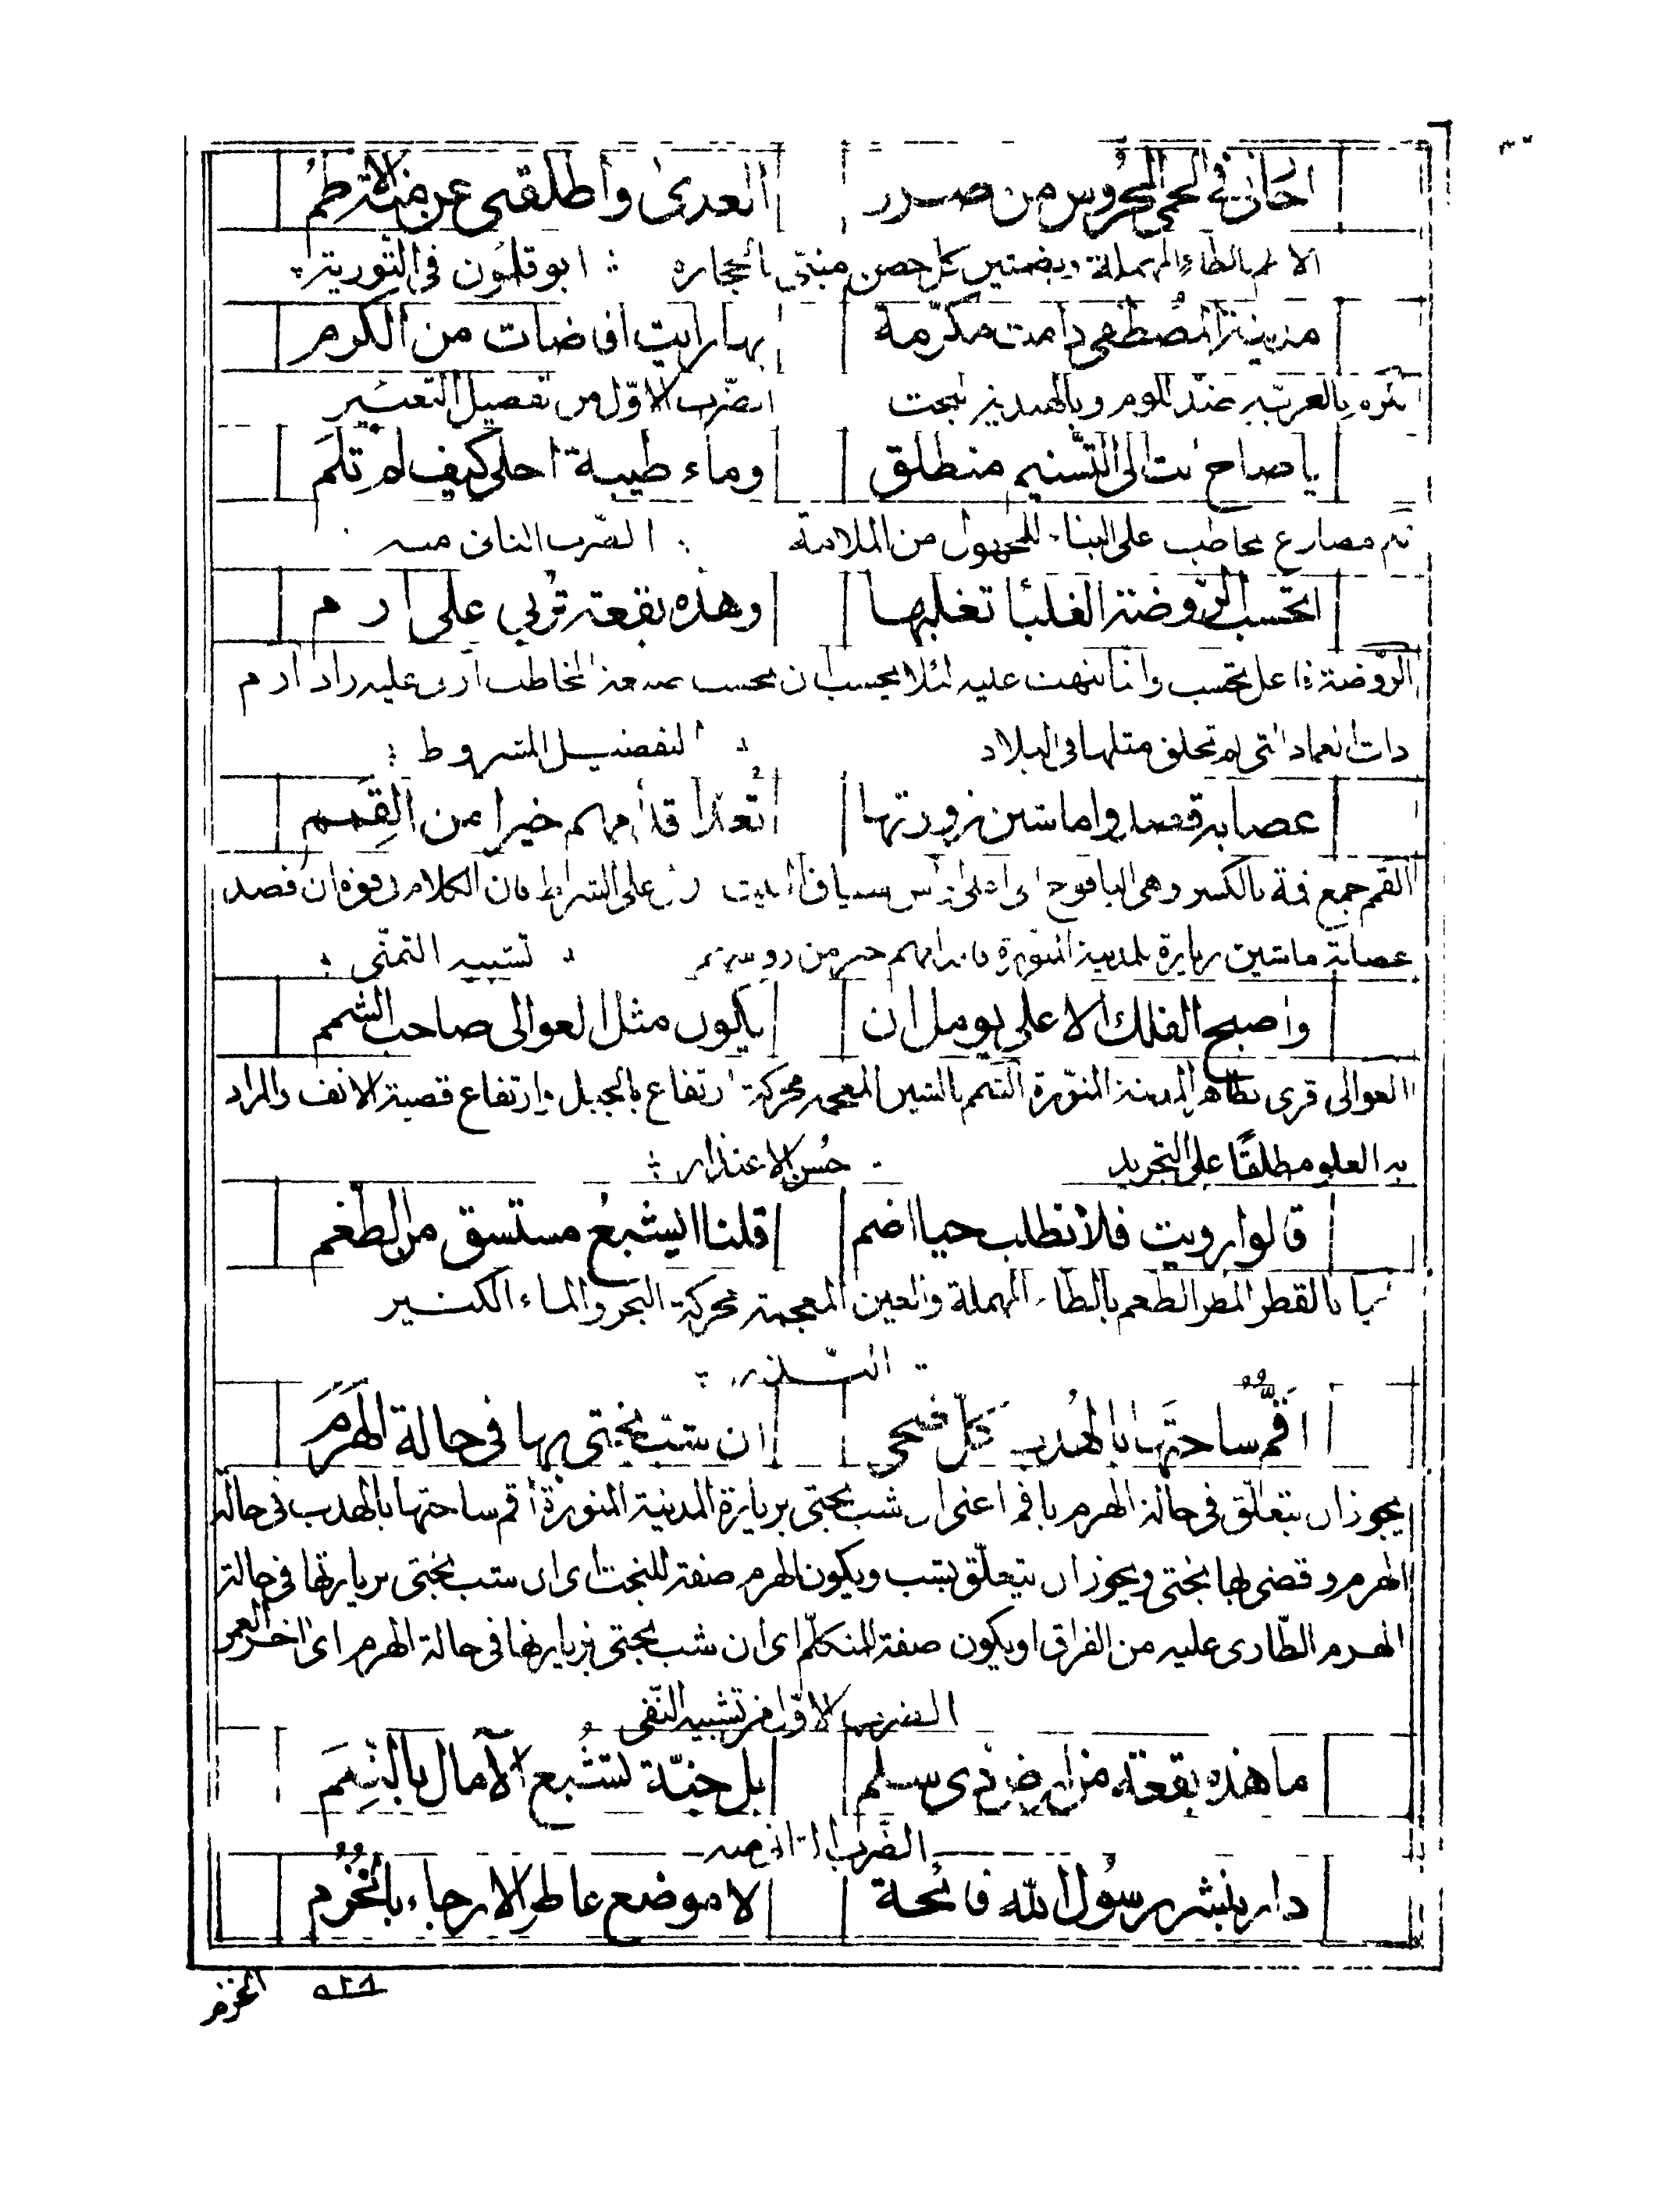 اجارني في الحمى المحروس من صدر العدى وأطلقني عن منة الأطم
الاطم بالطاء المهملة وبضمتين كل حصن مبني بالحجارة ؛ ابو قلمون في التورية
مدينة المصطفى دامت مكرّمة بها رايت افاضات من الكرم
بالعربية ضد اللوم وبالهندية الضرب الاوّل من تفصيل التعبير
يا صاح انت الى التسنيم منطلق وماء طيبة احلى كيف لم تلم
تلم مضارع مخاطب على البناء للمجهول من الملامة ؛ الضرب الثاني منه
اتحسب الروضة الغلباء تغلبها وهذه بقعة تربي على ارم
الروضة فاعل تحسب وانما نبهت عليه لئلا يحسب ان يحسب صيغة المخاطب اربى عليه زاد ارم
ذات العماد التي لم يخلق مثلها في البلاد ؛ التفضيل المشروط ؛
عصابة قصدوا ماشين زورتها تعد اقدامهم خيرا من القمم
القمم جمع قمة بالكسر وهي اليافوخ اي اعلى الراس سياق البيت على الشرط فان الكلام في قوة ان قصد
عصابة ماشين زيارة المدينة المنورة فاقدامهم خير من رؤسهم ؛ تشبيه التمني ؛
واصبح الفلك الاعلى يومل ان يكون مثل العوالي صاحب الشمم
العوالي قرى بظاهر المدينة المنوّرة الشمم بالشين المعجمة محركة ارتفاع بالجبل وارتفاع قصبة الانف والمراد
به العلو مطلقًا على التجريد ؛ حُسن الاعتذار ؛
قالوا رويت فلا تطلب حيا اضم قلنا ايشبعُ مستسق من الطغم
حيا بالقصر المطر الطغم بالطاء المهملة والغين المعجمة محركة البحر والماء الكثير
النذر
اقمّ ساحتها بالهدب كلّ ضحى ان شب بختي بها في حالة الهرم
يجوز ان يتعلّق في حالة الهرم باقم اعني ان شب بختي بزيارة المدينة المنورة أقم ساحتها بالهدب في حالة
الهرم وقضى بها بختي ويجوز ان يتعلّق بشب ويكون الهرم صفة للبخت اى ان شب بختي بزيارتها في حالة
الهرم الطارى عليه من الفراق او يكون صفة المتكلّم اى ان شب بختي بزيارتها في حالة الهرم اى اخر العمر
الضرب الاوّل من تشبيه النفي
ما هذه بقعة من ارض ذي سلم بل جنّة تشبع الآمال بالنعم
الضرب الثاني منه
دار بنشر رسول الله فائحة لا موضع عاطر الارجاء بالخزم
٥٢٨ الخزم